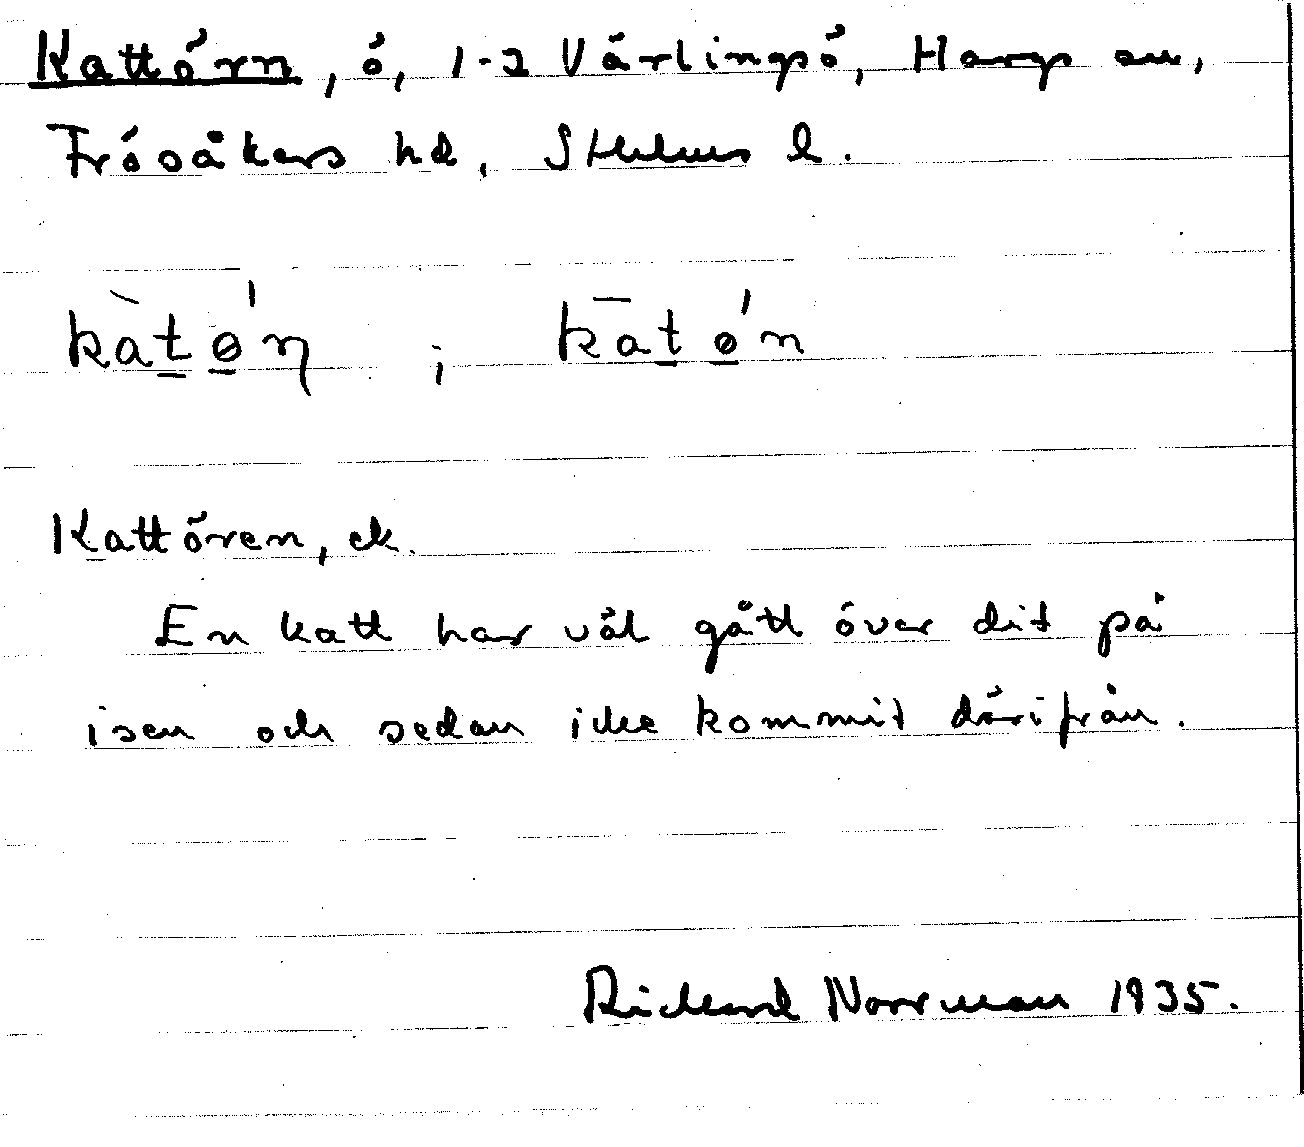 Kattörn, ö, 1-2 Värlingsö, Hargs sn,
Frösåkers hd, Sthlms l.
kàt̲ǿ̲ŋ ; kāt̲ǿ̲n
Kattören, ek.
En katt har väl gått över dit på
isen och sedan icke kommit därifrån.
Rickard Norrman 1935.